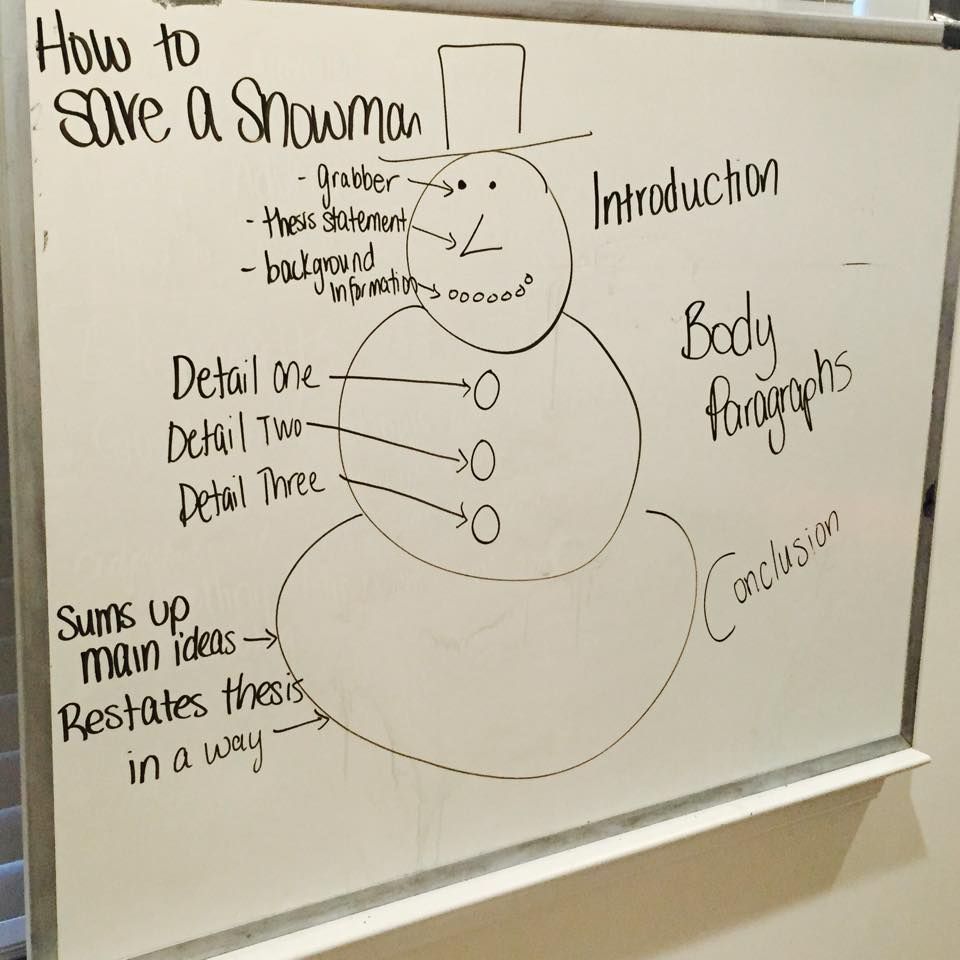 How to
save a Snowman
- grabber
- thesis statement
- background
information
Introduction
Detail one
Detail Two
Detail Three
Body
Paragraphs
Sums up
main ideas
Restates thesis
in a way
Conclusion